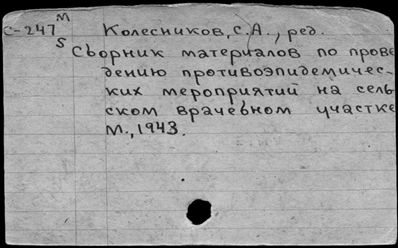 М
С-247
S
Колесников, С.А., ред.
Сборник материалов по прове
дению противоэпидемичес-
ких мероприятий на сель
ском врачебном участке
М., 1943.